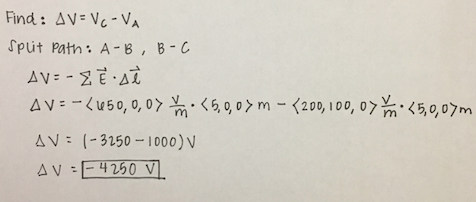 Find: ΔV = V_C - V_A
Split Path: A-B, B-C
ΔV = - Σ E⃗ · Δl⃗
ΔV = - <650, 0, 0> V/m · <5, 0, 0> m - <200, 100, 0> V/m · <5, 0, 0> m
ΔV = (-3250 - 1000) V
ΔV = -4250 V